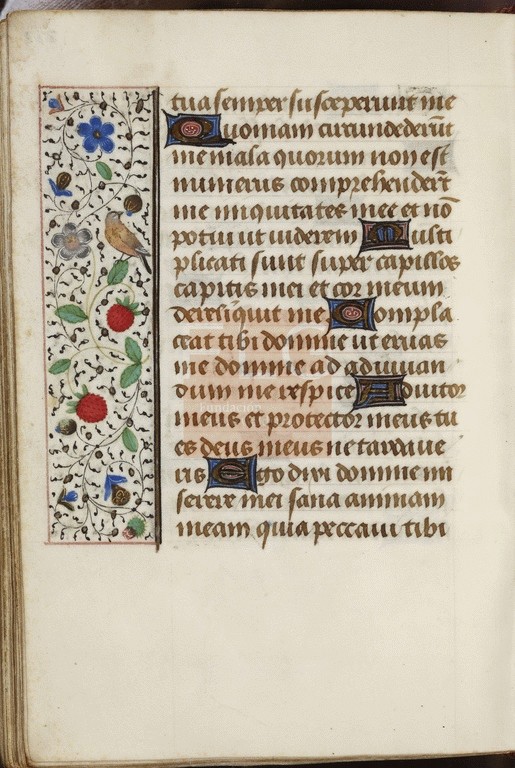 tua semper susceperunt me
Quoniam circundederūt
me mala quorum non est
numerus comprehenderūt
me iniquitates mee et nō
potui ut viderem Multi
plicati sunt super capillos
capitis mei et cor meum
dereliquit me Compla
ceat tibi domine ut eruas
me domine ad adiuvan
dum me respice Adiutor
meus et protector meus tu
es deus meus ne tardaue
ris Ego dixi domine mi
serere mei sana animam
meam quia peccaui tibi
Fundación